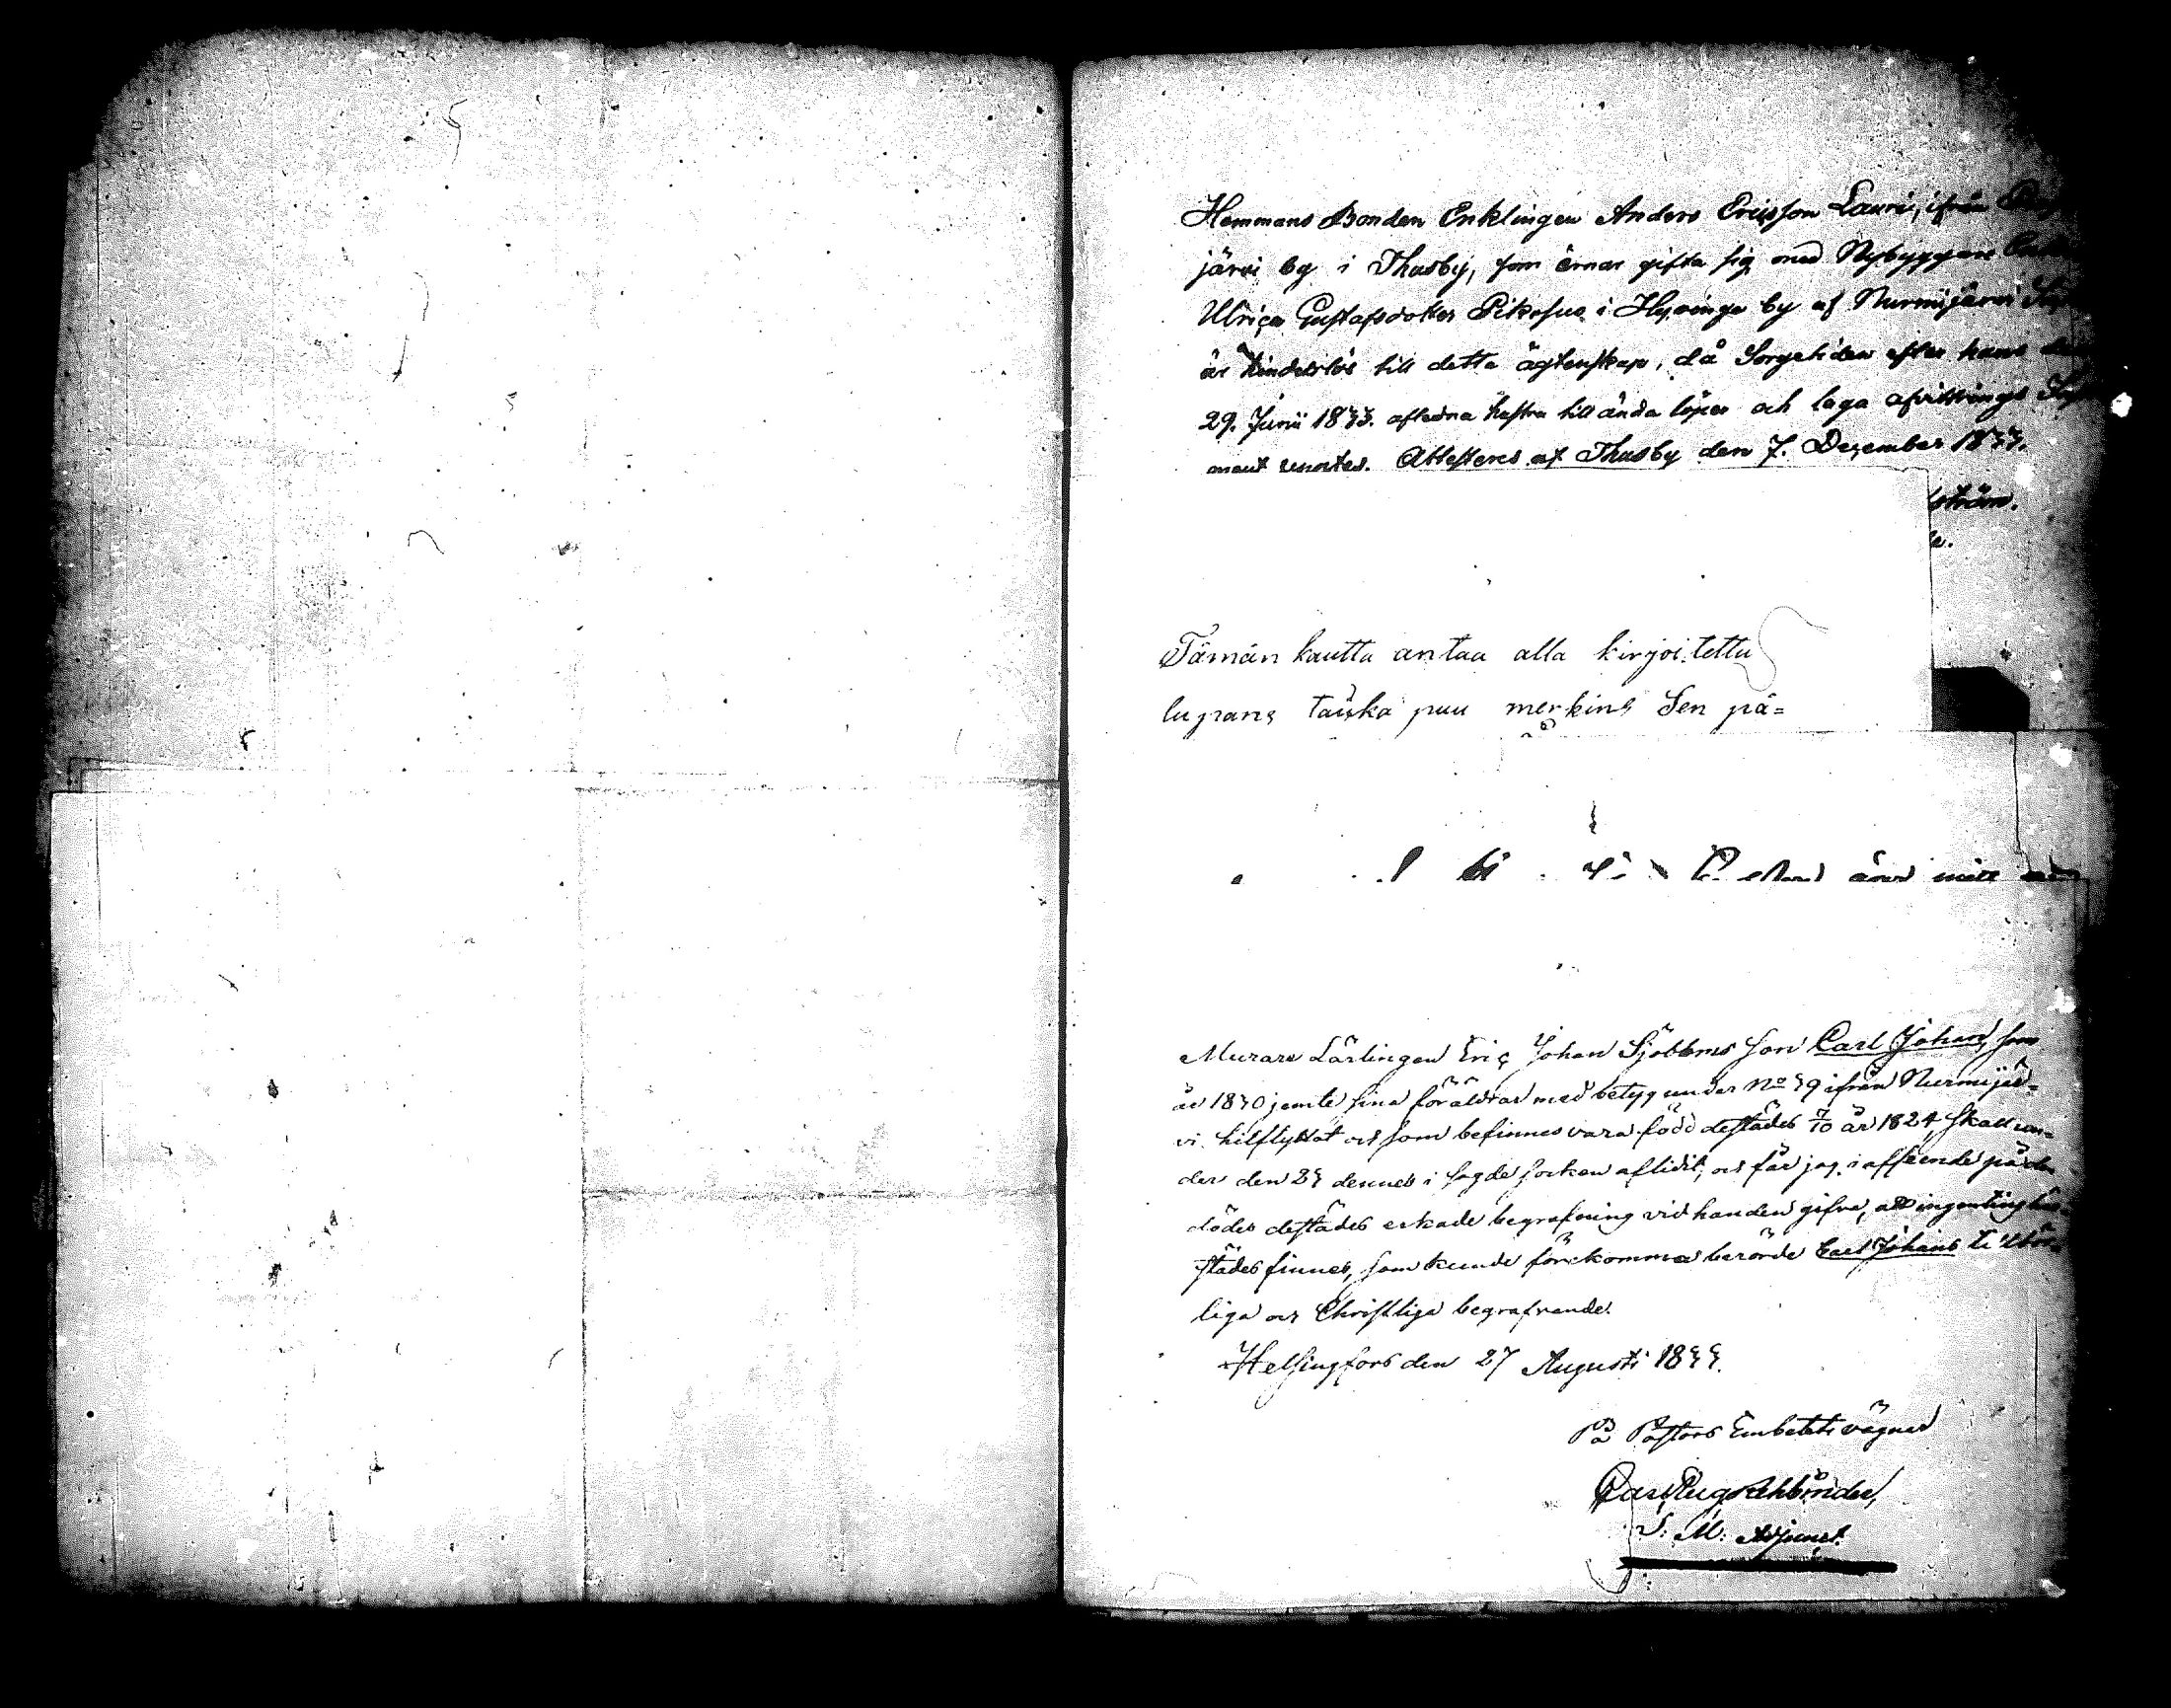 Hemmans Bonden Enklingen Anders Ericsson Lauri, ifrån
järvi by i Thusby, som ärnar gifta sig med Nybyggare
Ulrica Gustafsdotter Pikosus i Hyvinge by af Nurmijärvi
är hinderlös till detta ägtenskap, då Sorgetiden efter hans
29. Junii 1833. aflidna hustru till ända löper och laga afvittrings
ment Attesteras af Thusby den 7. December 1833.
ström.
Tämän kautta antaa alla kirjoitettu
puu merkins Sen pä=
Murare Lärlingen Eric Johan Sjöbloms son Carl Johan, som
år 1830 jemte sina föräldrar med betyg under No 39 ifrån Nurmijär=
vi hitflyttat och som befinnes vara född destädes 7/10 år 1824 skall un=
der den 23 dennes i sagde socken aflidit, och får jag i afseende på den
dödes destädes erkade begrafning vid handen gifva, att ingenting här=
städes finnes, som kunde förekomma berörde Carl Johans tillbör=
liga och Christliga begrafvande.
Helsingfors den 27 Augusti 1833.
På Pastors Embetets vägnar
Carl Aug Rehbinder,
V. M. Adjunct.